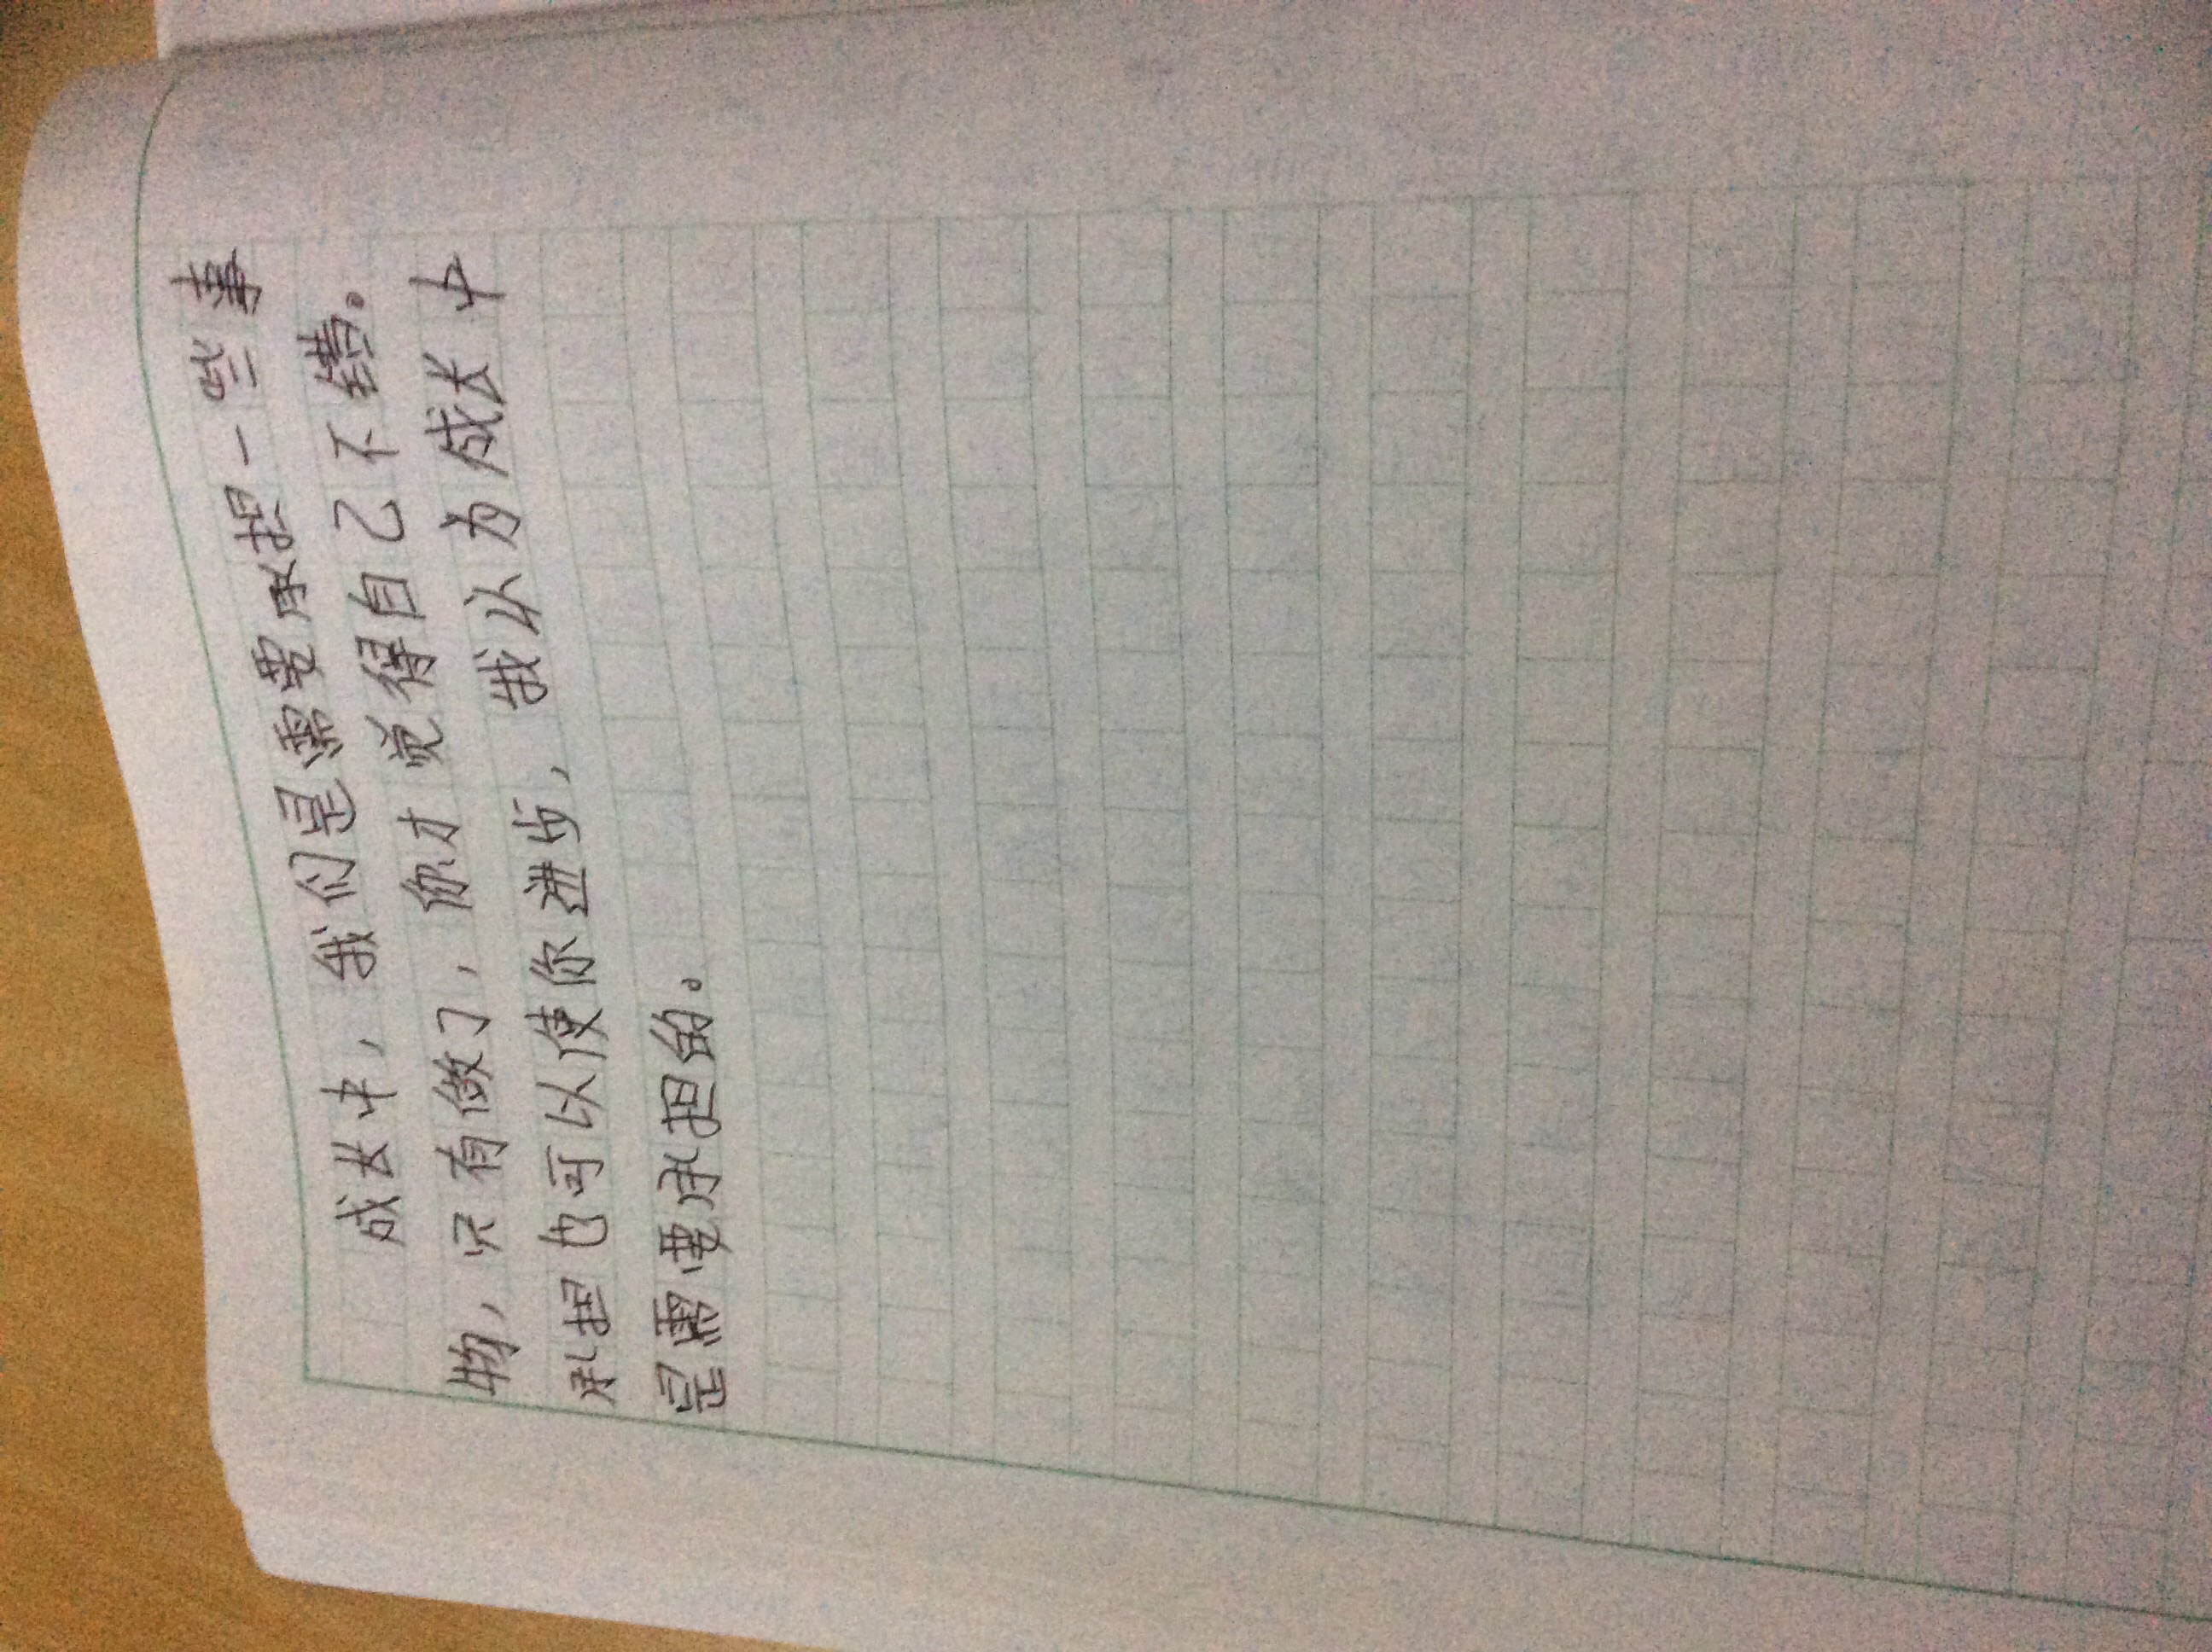 成长中，我们是需要承担一些事
物，只有做了，你才觉得自己不错。
承担也可以使你进步，我以为成长中
是需要承担的。